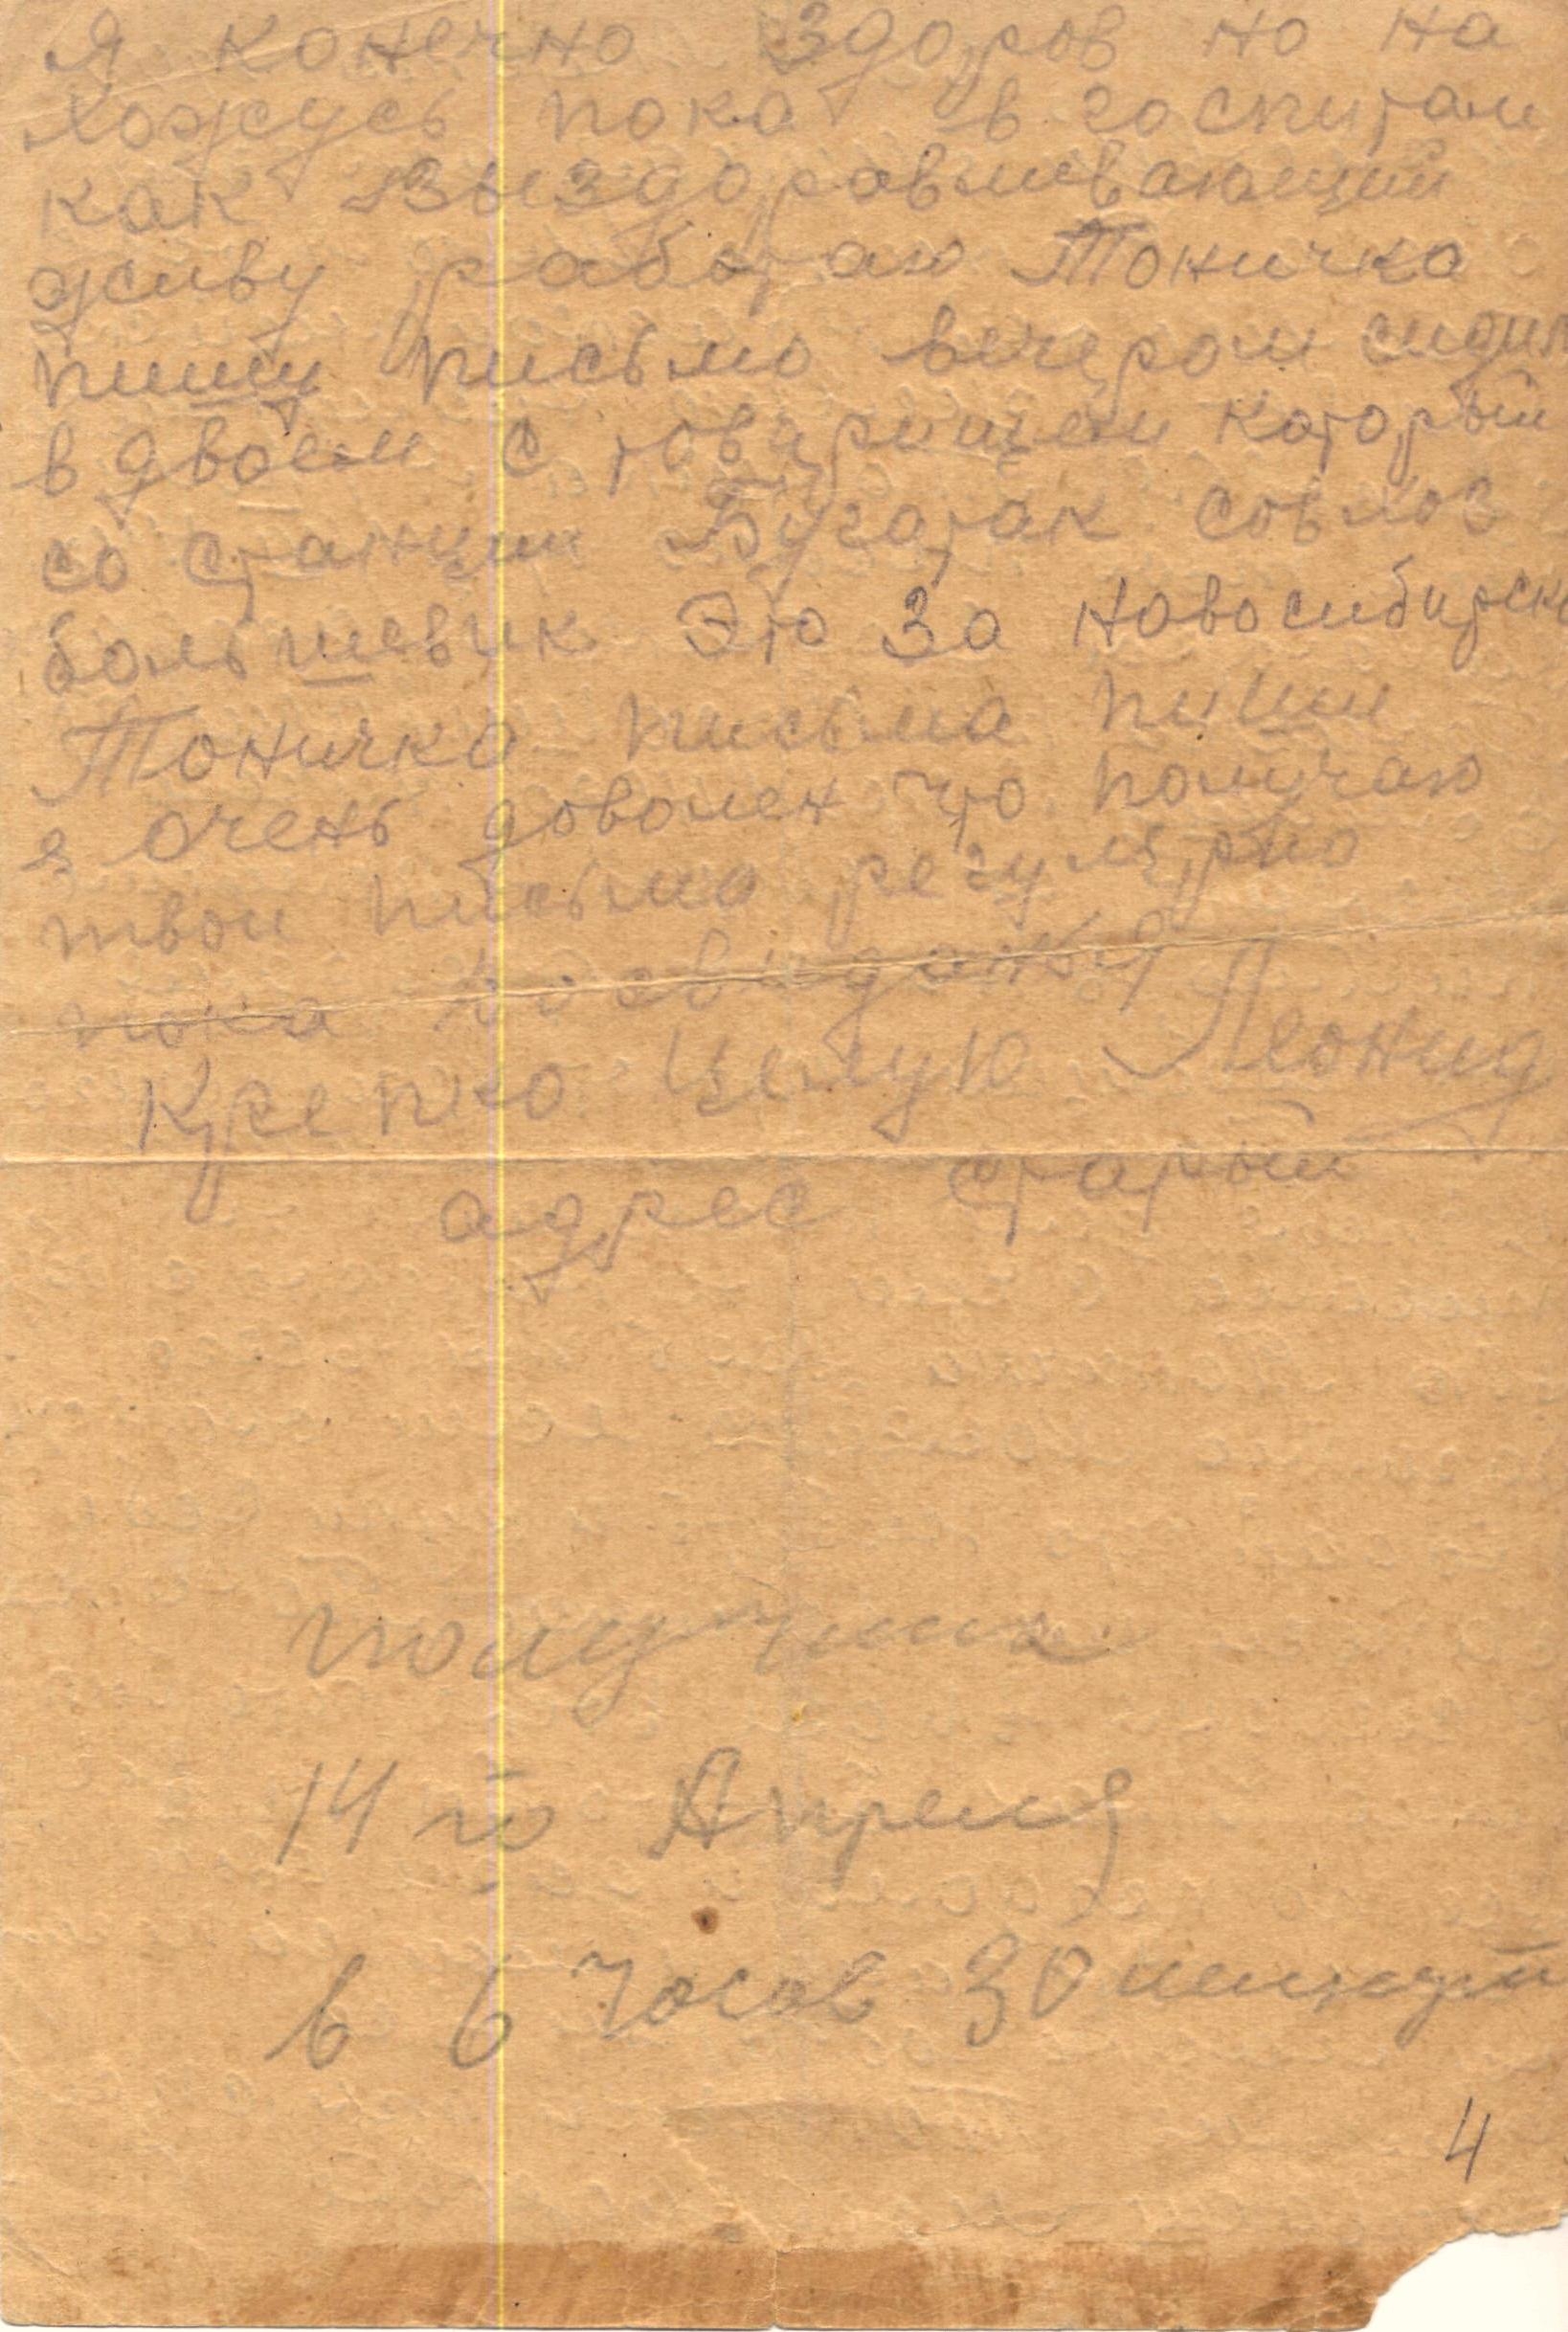 Я конечно здоров но на
хожусь пока в госпитали
как выздоравливающий
живу работаю Тоничка
пишу письмо вечером сидим
в двоем с товарищем который
со станции Буготак совхоз
большевик Это за Новосибирском
Тоничка письма пиши
я очень доволен что получаю
твои письма регулярно
пока досвидания
Крепко целую Леонид
адрес старый
получила
14 го Апреля
в 6 часов 30 минут
4